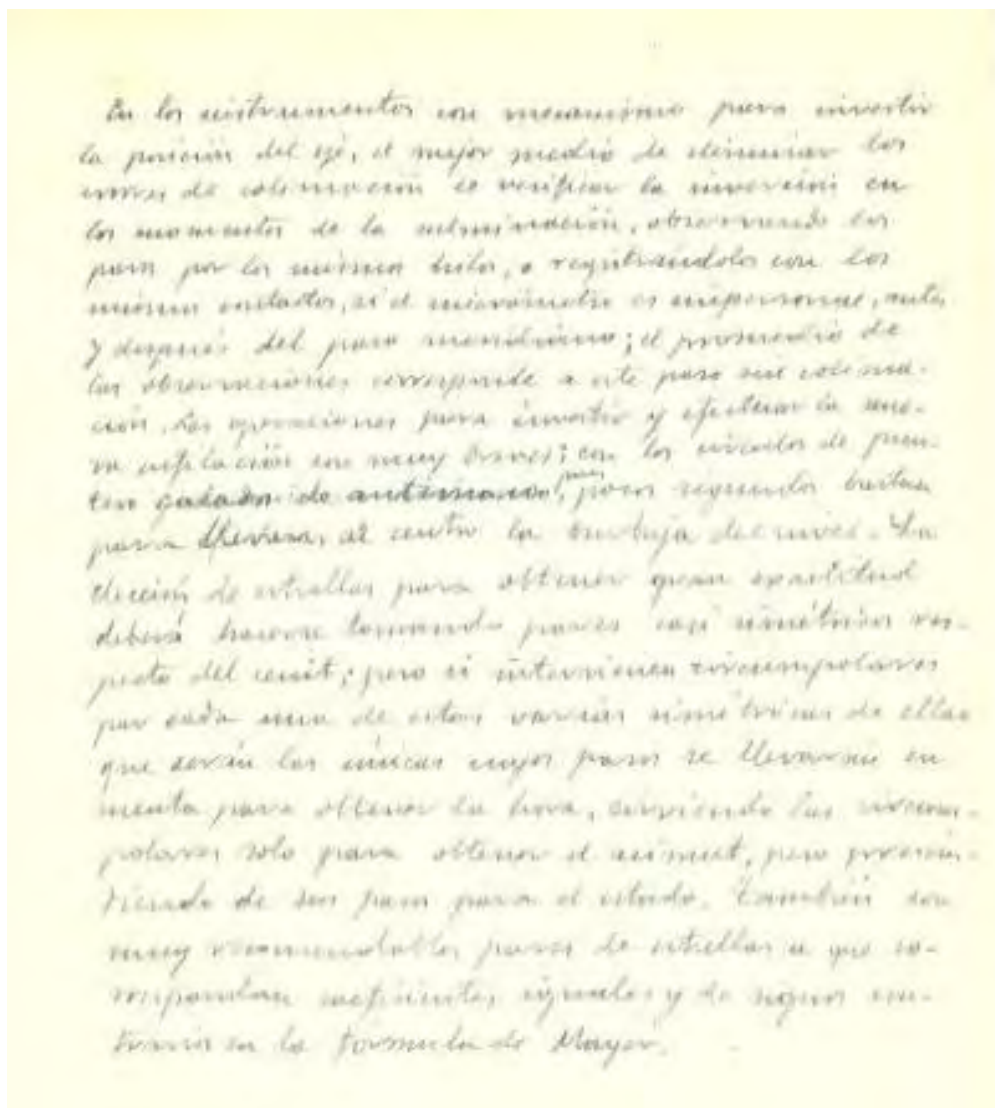 En los instrumentos con mecanismo para invertir
la posición del eje, el mejor medio de eliminar los
errores de colimación es verificar la inversión en
los momentos de la culminación, observando los
pasos por los mismos hilos, o registrándolos con los
mismos contactos, si el micrómetro es impersonal, antes
y después del paso meridiano; el promedio de
las observaciones corresponde a este paso sin colima-
ción. Las operaciones para invertir y efectuar la nue-
va son muy breves; con los círculos de pun-
tería calado de antemano, pues, pocos segundos bastan
para llevar al centro la burbuja del nivel. La
elección de estrellas para obtener gran exactitud
deberá hacerse tomando pares casi simétricos res-
pecto del cenit; pero si intervienen circumpolares
por cada una de estas varias simétricas de ellas
que serán las únicas cuyos pasos se llevarán en
cuenta para obtener la hora, sirviendo las circum-
polares solo para obtener el azimut, pero prescin-
diendo de sus pasos para el estado. También son
muy recomendables pares de estrellas a que co-
rrespondan coeficientes iguales y de signos con-
trarios en la formula de Mayer.